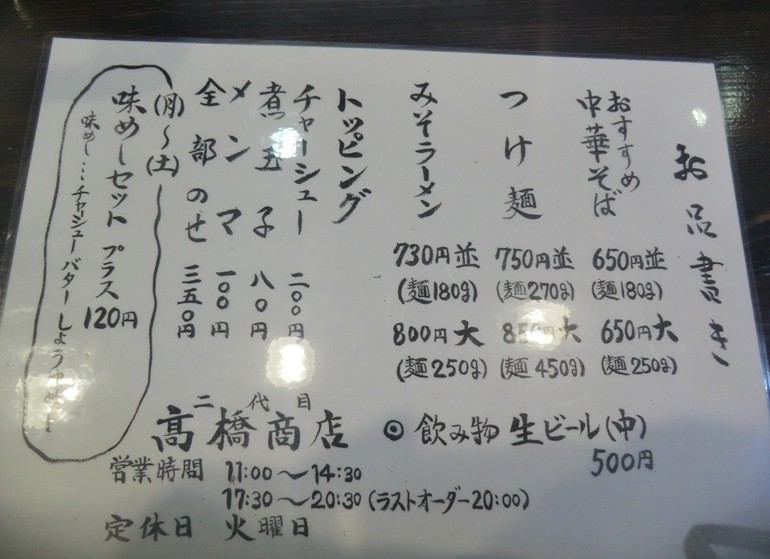 お品書き
おすすめ
中華そば
650円並
(麺180g)
650円大
(麺250g)
つけ麺
750円並
(麺270g)
850円大
(麺450g)
みそラーメン
730円並
(麺180g)
800円大
(麺250g)
トッピング
チャーシュー 二〇〇円
煮玉子 八〇円
メンマ 一〇〇円
全部のせ 三五〇円
(月)〜(土)
味めしセット プラス120円
味めし…チャーシューバターしょうゆ
二代目
髙橋商店
◎ 飲み物 生ビール(中)
500円
営業時間 11:00〜14:30
17:30〜20:30(ラストオーダー20:00)
定休日 火曜日